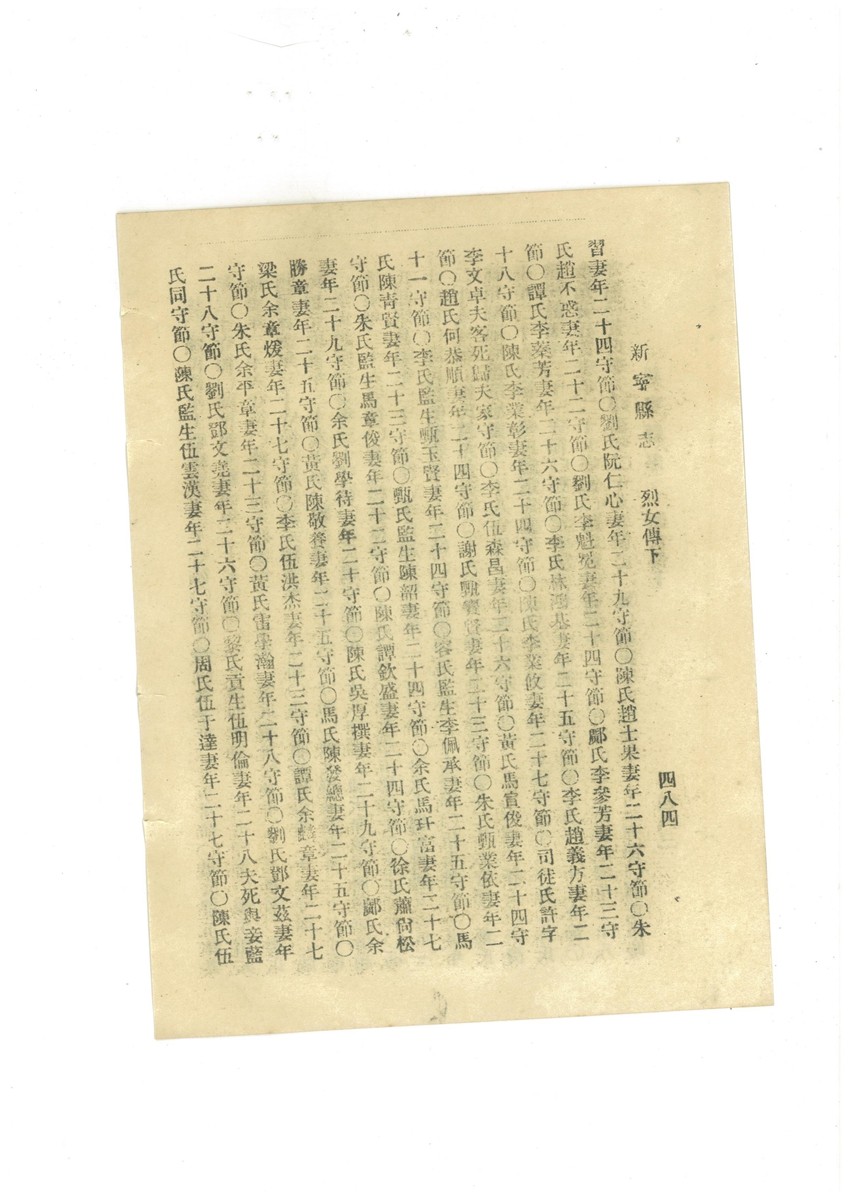 新寧縣志 烈女傳下 四八四
習妻年二十四守節〇劉氏阮仁心妻年二十九守節〇陳氏趙士果妻年二十六守節〇朱
氏趙不惑妻年二十二守節〇劉氏李魁冕妻年二十四守節〇鄺氏李參芳妻年二十三守
節〇譚氏李蓁芳妻年二十六守節〇李氏林鴻基妻年二十五守節〇李氏趙義方妻年二
十八守節〇陳氏李業彰妻年二十四守節〇陳氏李業攸妻年二十七守節〇司徒氏許字
李文卓夫客死歸夫家守節〇李氏伍森昌妻年二十六守節〇黃氏馬賓俊妻年二十四守
節〇趙氏何恭順妻年二十四守節〇謝氏甄賢妻年二十三守節〇朱氏甄業依妻年二
十一守節〇李氏監生甄玉賢妻年二十四守節〇容氏監生李佩承妻年二十五守節〇馬
氏陳青賢妻年二十三守節〇甄氏監生陳韶妻年二十四守節〇余氏馬玕富妻年二十七
守節〇朱氏監生馬章俊妻年二十二守節〇陳氏譚欽盛妻年二十四守節〇徐氏蕭尙松
妻年二十九守節〇余氏劉學待妻年二十守節〇陳氏吳厚撰妻年二十九守節〇鄺氏余
勝章妻年二十五守節〇黃氏陳敬養妻年二十五守節〇馬氏陳發總妻年二十五守節〇
梁氏余章煖妻年二十七守節〇李氏伍洪杰妻年二十三守節〇譚氏余章妻年二十七
守節〇朱氏余平章妻年二十三守節〇黃氏雷學瀚妻年二十八守節〇劉氏鄧文茲妻年
二十八守節〇劉氏鄧文堯妻年二十六守節〇黎氏貢生伍明倫妻年二十八夫死與妾藍
氏同守節〇陳氏監生伍雲漢妻年二十七守節〇周氏伍于達妻年二十七守節〇陳氏伍